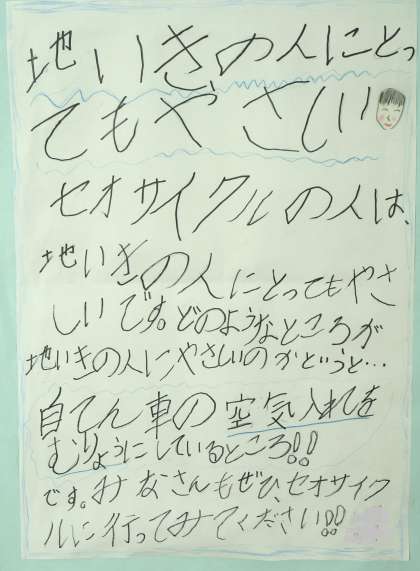 地いきの人にとっ
てもやさしい
セオサイクルの人は、
地いきの人にとってもやさ
しいです。どのようなところが
地いきの人にやさしいのかというと…
自てん車の空気入れを
むりょうにしているところ!!
です。みなさんもぜひ、セオサイク
ルに行ってみてください!!